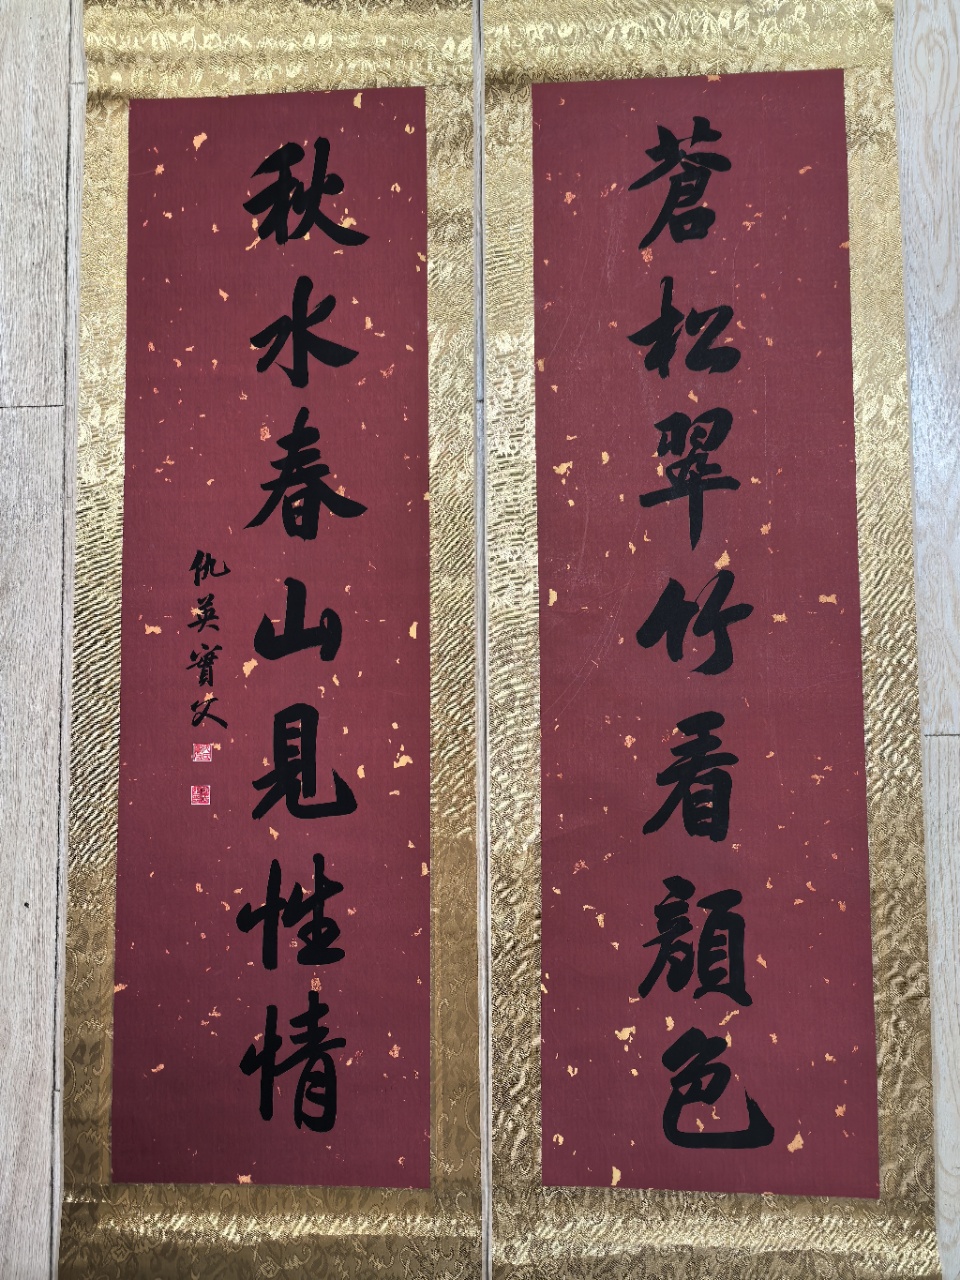 蒼松翠竹看顔色
秋水春山見性情
仇英實父